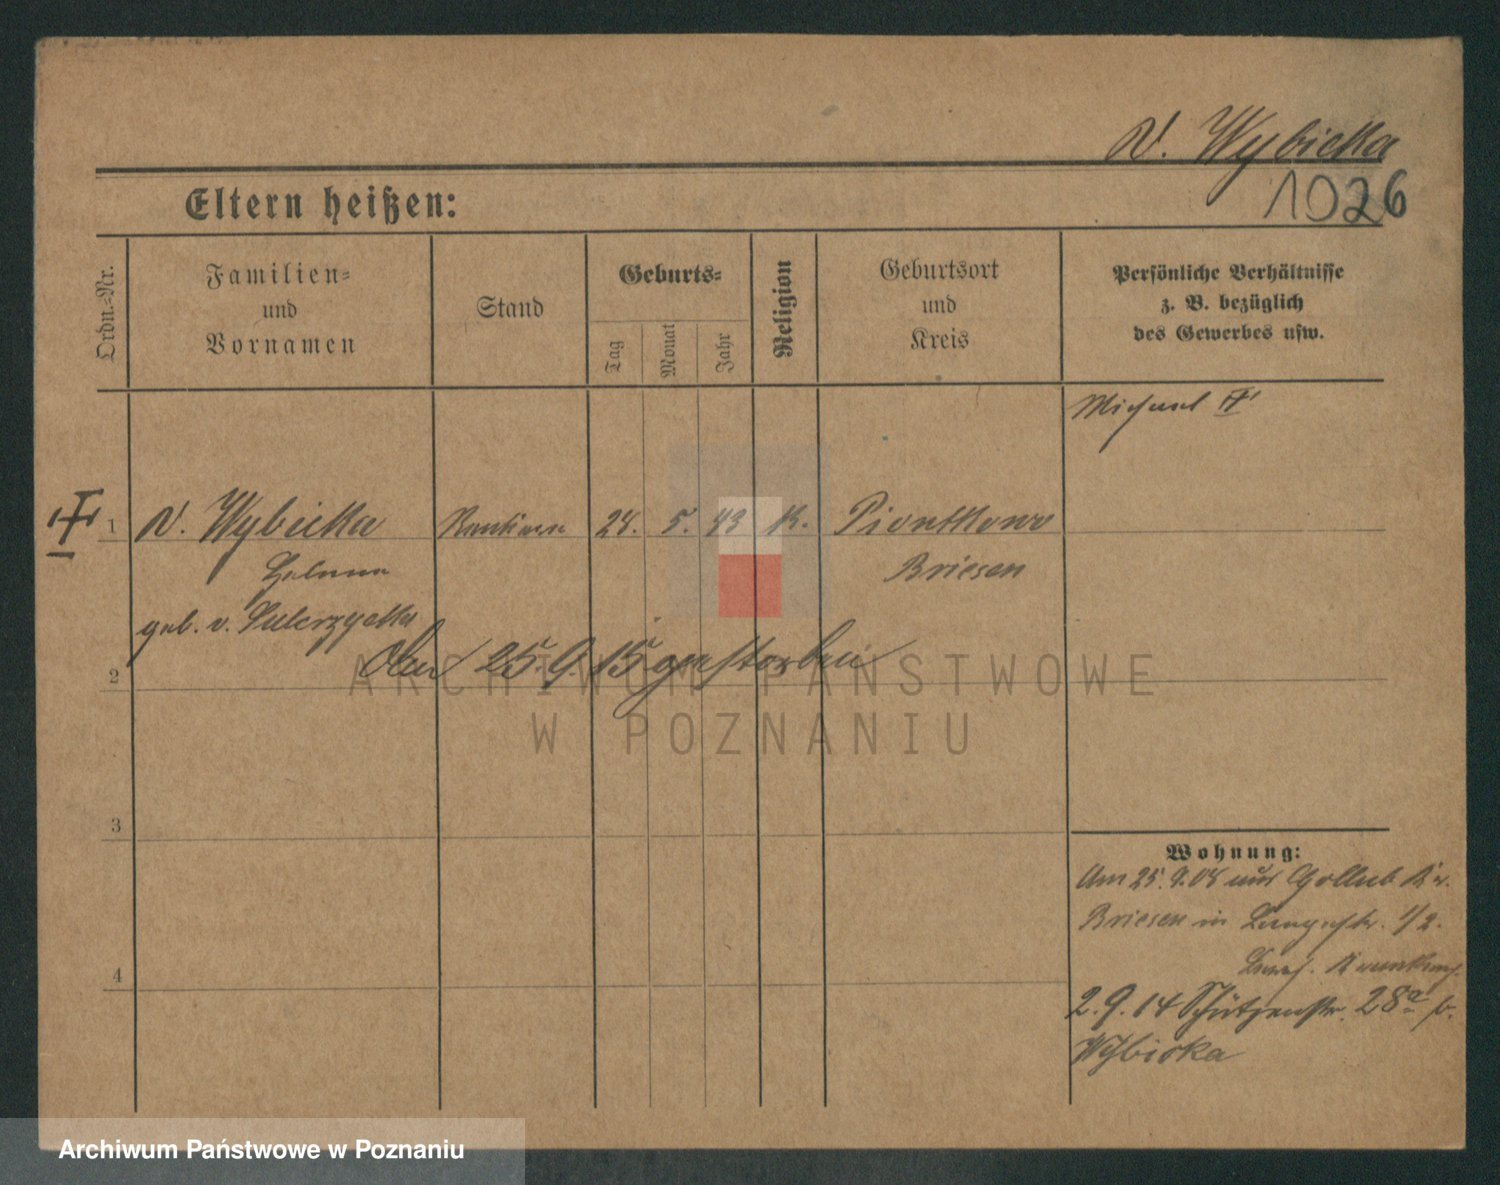 v. Wybicka
1026
Eltern heißen:
Ordn.-Nr.
Familien-
und
Vornamen
Stand
Geburts-
Tag
Monat
Jahr
Religion
Geburtsort
und
Kreis
Persönliche Verhältnisse
z. B. bezüglich
des Gewerbes usw.
Michael
1 v. Wybicka Rentiere 28. 5. 43 K. Piontkowo
Helena Briesen
geb. v. Sulerzycka
2 25.9.15 gestorben
3
4
Wohnung:
Am 25.9.08 aus Gollub Kr.
Briesen in Langestr. 1/2.
2.9.14 Schützenstr. 28a b.
Wybicka
ARCHIWUM PAŃSTWOWE
W POZNANIU
Archiwum Państwowe w Poznaniu